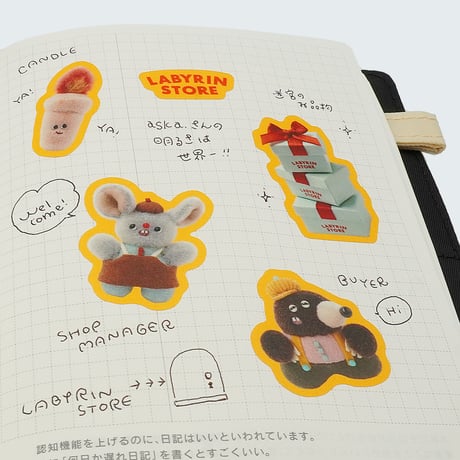 CANDLE
YA!
YA,
LABYRIN
STORE
aska.さんの
明るさは
世界一!!
LABYRIN
STORE
LABYRIN
STORE
Wel
come!
SHOP
MANAGER
BUYER
Hi
LABYRIN
STORE
認知機能を上げるのに、日記はいいといわれています。
「何日か遅れ日記」を書くとすごくいい。